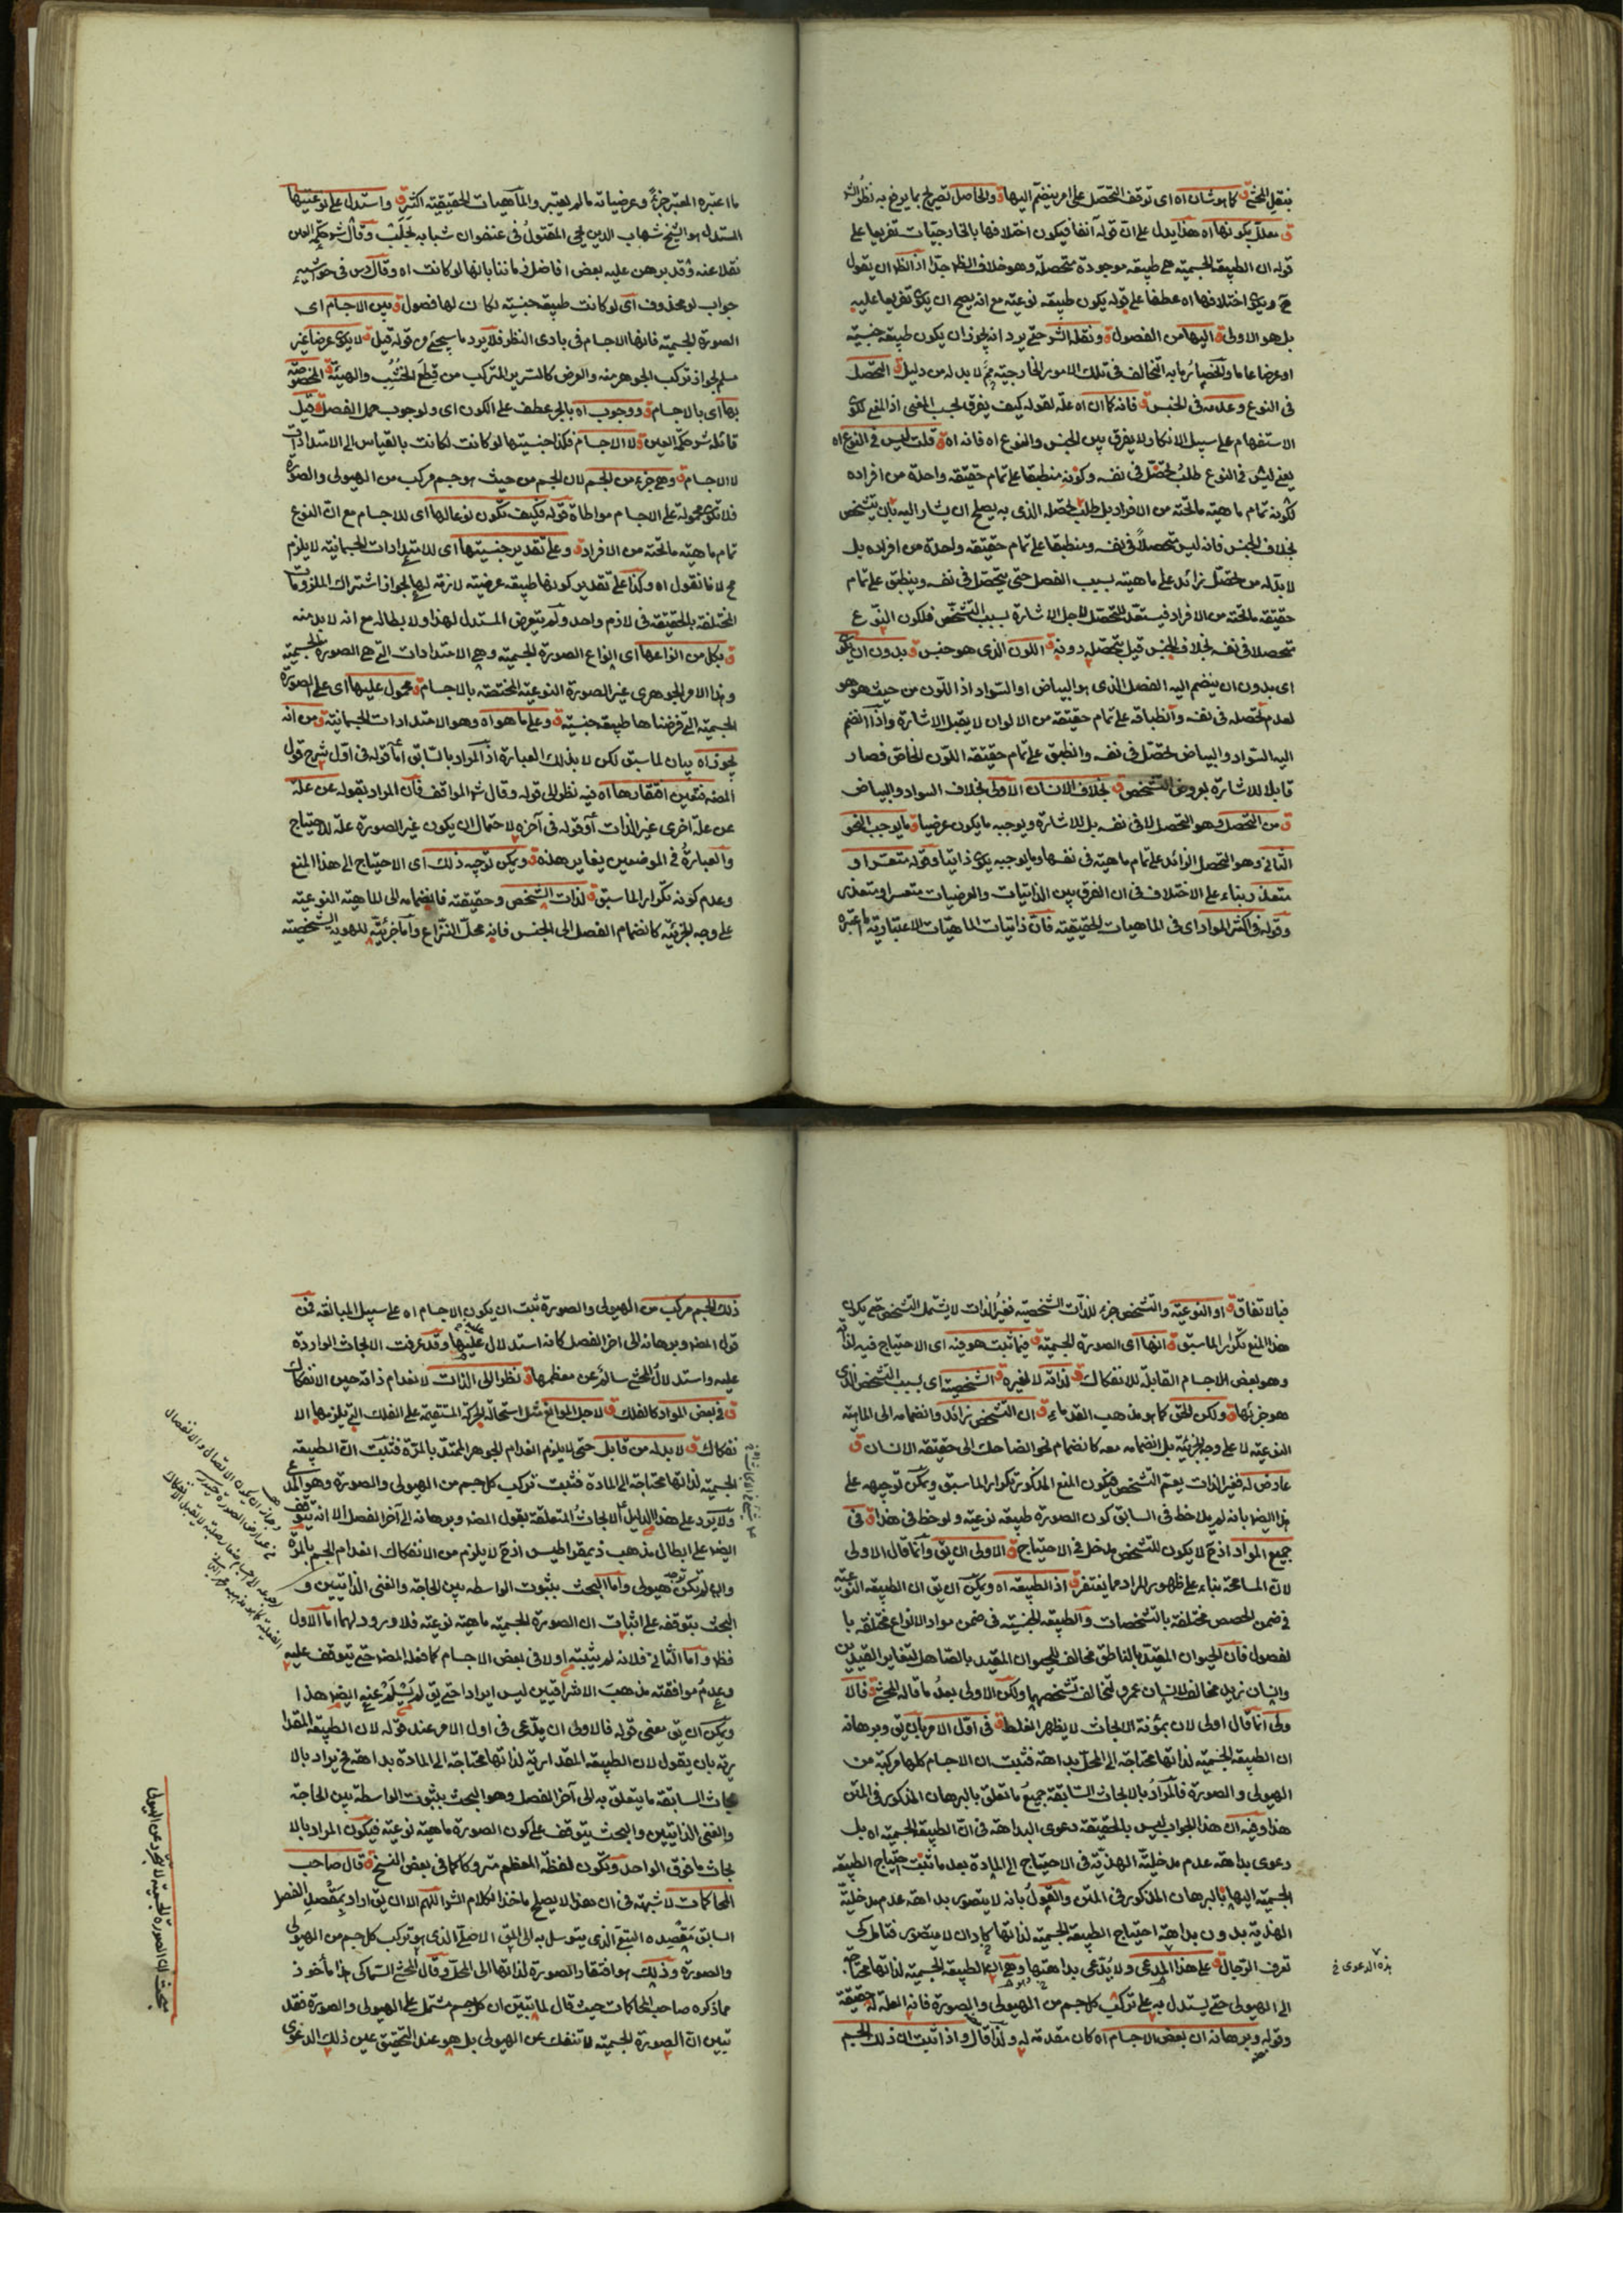 ينقل المحشي ق كما هو شان اه اى توقف التحصل على امر ينضم اليها ق والحاصل تصريح بما يرفع به نظر
ق معللا بكونها اه هذا يدل على ان قوله آنفا فيكون اختلافها بالخارجيات تفريعا على
قوله ان الطبيعة الجسمية هى طبيعة موجودة متحصلة وهو خلاف الظ جدا اذ الظ ان يقول
ويكون اختلافها اه عطفا على قوله يكون طبيعة نوعية مع انه يصح ان يكون تفريعا عليه
بل هو الاولى ق اليها من الفصول ق ونقله الشو حتى يرد انه يجوز ان يكون طبيعة جنسية
او عرضا عاما والخصائر ما به التخالف فى تلك الامور الخارجية لا بد له من دليل ق التحصل
فى النوع وعدمه فى الجنس ق فانه كما ان اه علة لقوله كيف يفرق بحسب المعنى اذ المعنى
الاستفهام على سبيل الانكار ولا يفرق بين الجنس والنوع اه فانه اه ق قلت ليس فى النوع اه
يعنى ليس فى النوع طلب تحصل فى نفسه وكونه منطبقا على تمام حقيقة واحدة من افراده
لكونه تمام ماهية ما تحته من الافراد بل طلب تحصله الذى به يصلح ان يشار اليه بان يتشخص
بخلاف الجنس فانه ليس متحصلا فى نفسه ومنطبقا على تمام حقيقة واحدة من افراده بل
لا بد له من تحصل زائد على ماهيته بسبب الفصل حتى يتحصل فى نفسه وينطبق على تمام
حقيقة ما تحته من الافراد فيستعد للتحصل لاجل الاشارة بسبب التشخص فلكون النوع
متحصلا فى نفسه بخلاف الجنس قيل بتحصله دونه ق اللون الذى هو جنس ق بدون ان
اى بدون ان ينضم اليه الفصل الذى هو البياض او السواد اذ اللون من حيث هو هو
لعدم تحصله فى نفسه وانطباقه على تمام حقيقة من الالوان لا يقبل الاشارة واذا انضم
اليه السواد والبياض تحصل فى نفسه وانطبق على تمام حقيقة اللون الخاص فصار
قابلا للاشارة بعروض التشخص ق بخلاف الانسان الاولى بخلاف السواد والبياض
ق من التحصل وهو التحصل لا فى نفسه بل للاشارة ويوجبه ما يكون عرضيا ق ما يوجب النحو
الثانى وهو التحصل الزائد على تمام ماهية فى نفسها وما يوجبه يكون ذاتيا وقوله متعسر او
متعذر بناء على الاختلاف فى ان الفرق بين الذاتيات والعرضيات متعسر او متعذر
وقوله فى اكثر المواد اى فى الماهيات الحقيقية فان ذاتيات الماهيات الاعتبارية
ما اعتبره المعتبر جزء وعرضياته ما لم يعتبر والماهيات الحقيقية اكثر ق واستدل على نوعيتها
المستدل هو الشيخ شهاب الدين يحيى المقتول فى عنفوان شبابه بحلب وقال شو حكمة العين
نقلا عنه وقد برهن عليه بعض افاضل زماننا بانها لو كانت اه وقال فى حواشيه
جواب لو محذوف اى لو كانت طبيعة جنسية لكان لها فصول ق بين الاجسام اى
الصورة الجسمية فانها الاجسام فى بادى النظر فلا يرد ما سيجئ من قوله قيل ق لا يكون عرضا غير
مسلم لجواز تركب الجوهر منه والعرض كالسرير المتركب من قطع الخشب والهيئة ق المخصوصة
بها اى بالاجسام ق ووجوب اه بالجر عطف على الكون اى ولوجوب حمل الفصل ق قيل
قائله شو حكمة العين ق لا الاجسام فكذا جنسيتها لو كانت لكانت بالقياس الى الامتدادات
لا الاجسام ق وهى جزء من الجسم لان الجسم من حيث هو جسم مركب من الهيولى والصورة
فلا تكون محمولة على الاجسام مواطاة قوله فكيف تكون نوعا لها اى للاجسام مع ان النوع
تمام ماهية ما تحته من الافراد ق وعلى تقدير جنسيتها اى للامتدادات الجسمانية لا يلزم
لا ما نقول اه وكذا على تقدير كونها طبيعة عرضية لازمة لها لجواز اشتراك الملزومات
المختلفة بالحقيقة فى لازم واحد ولم يتعرض المستدل لهذا ولا بطاله مع انه لا بد منه
ق بكل من انواعها اى انواع الصورة الجسمية وهى الامتدادات التى هى الصورة الجسمية
وهذا الامر الجوهرى غير الصورة النوعية المختصة بالاجسام ق محمول عليها اى على الصورة
الجسمية التى فرضناها طبيعة جنسية ق وعلى ما هو اه وهو الامتدادات الجسمانية ق ومن انه
يجوز اه بيان لما سبق لكن لا بذلك العبارة اذ المراد بالسابق اما قوله فى اول شرح قول
المص فتعين افتقارها اه فيه نظر الى قوله وقال شو المواقف فان المراد بقوله عن علة
عن علة اخرى غير الذات او قوله فى آخره لاحتمال ان يكون غير الصورة علة للاحتياج
والعبارة فى الموضعين يغاير هذه ق ويمكن توجيه ذلك اى الاحتياج الى هذا المنع
وعدم كونه تكرار الما سبق ق لذات الشخص وحقيقته فانضمامه الى الماهية النوعية
على وجه الجزئية كانضمام الفصل الى الجنس فانه محل النزاع واما جزئية للهوية الشخصية
فبالاتفاق ق او النوعية والتشخص جزء للذات الشخصية فغير الذات لا يشمل التشخص حتى يكون
هذا المنع تكرار الما سبق ق انها اى الصورة الجسمية ق فيما ثبت هو فيه اى الاحتياج فيه لذاته
وهو بعض الاجسام القابلة للانفكاك ق لذاته لا لغيره ق الشخصية اى بسبب التشخص الذى
هو جزئها ق ولكن الحق كما هو مذهب القدماء ق ان التشخص زائد وانضمامه الى الماهية
النوعية لا على وجه الجزئية بل انضمامه معه كانضمام نحو الضاحك الى حقيقة الانسان ق
عارض له فغير الذات يعم التشخص فيكون المنع المذكور تكرار الما سبق ويمكن توجيهه على
هذا ايضا بانه لم يلاحظ فى السابق كون الصورة طبيعة نوعية ولوحظ فى هذا ق فى
جميع المواد اذ لا يكون للتشخص مدخل فى الاحتياج ق الاولى ان يق وانما قال الاولى
لان المسامحة بناء على ظهور المراد مما يغتفر ق اذ الطبيعة اه ويمكن ان يق ان الطبيعة النوعية
فى ضمن الحصص مختلفة بالتشخصات والطبيعة الجنسية فى ضمن مواد الانواع مختلفة با
لفصول فان الحيوان المقيد بالناطق مخالف للحيوان المقيد بالصاهل لتغاير القيدين
وانسان زيد مخالف لانسان عمرو لتخالف تشخصهما ولكن الاولى بعد ما قاله المحشى ق فالا
ولى انما قال اولى لان بمؤنة الابحاث لا يظهر الغلط ق فى اول الامر بان يق وبرهانه
ان الطبيعة الجسمية لذاتها محتاجة الى المحل بداهة فثبت ان الاجسام كلها مركبة من
الهيولى والصورة فالمراد بالابحاث السابقة جميع ما تعلق بالبرهان المذكور فى المتن
هذا وفيه ان هذا الجواب ليس بالحقيقة دعوى البداهة فى ان الطبيعة الجسمية اه بل
دعوى بداهة عدم مدخلية الهذية فى الاحتياج الى المادة بعد ما ثبت احتياج الطبيعة
الجسمية اليها بالبرهان المذكور فى المتن والقول بانه لا يتصور بداهة عدم مدخلية
الهذية بدون بداهة احتياج الطبيعة الجسمية لذاتها كاد ان لا يتصور فتامل كى
تعرف الرجال ق على هذا المدعى ولا يدعى بداهتها وهى ان الطبيعة الجسمية لذاتها محتاجة
الى الهيولى حتى يستدل به على تركب كل جسم من الهيولى والصورة فانه العلة له حقيقة
وقوله وبرهانه ان بعض الاجسام اه كان مقدمة له ولذا قال واذا ثبت ان ذلك الجسم
هذه الدعوى
ذلك الجسم مركب من الهيولى والصورة ثبت ان يكون الاجسام اه على سبيل المبالغة فمن
قول المص وبرهانه الى اخر الفصل كانه استدلال عليها وقد عرفت الابحاث الواردة
عليه واستدلال المحشى سالم عن معظمها ق نظرا الى الذات لانعدام ذاته حين الانفكاك
ق فى بعض المواد كالفلك ق لاجل الموانع مثل استحالة الحركة المستقيمة على الفلك التى يلزمها الا
نفكاك ق لا بد له من قابل حتى لا يلزم انعدام الجوهر الممتد بالمرة فثبت ان الطبيعة
الجسمية لذاتها محتاجة الى المادة فثبت تركب كل جسم من الهيولى والصورة وهو المدعى
ولا يرد على هذا الدليل الابحاث المتعلقة بقول المص وبرهانه الى آخر الفصل الا انه يتوقف
ايضا على ابطال مذهب ذيمقراطيس اذ لا يلزم من الانفكاك انعدام الجسم بالمرة
وان لم تكن هيولى واما البحث بثبوت الواسطة بين الحاجة والغنى الذاتيين و
البحث بتوقفه على اثبات ان الصورة الجسمية ماهية نوعية فلا ورود لهما اما الاول
فظ واما الثانى فلانه لم يثبته اولا فى بعض الاجسام كما فعله المص حتى يتوقف عليه
وعدم موافقته مذهب الاشراقيين ليس ايرادا حتى يق لم يسلم عنه ايضا هذا
ويمكن ان يق معنى قوله فالاولى ان يدعى فى اول الامر عند قوله لان الطبيعة المقدا
رية بان يقول لان الطبيعة المقدارية لذاتها محتاجة الى المادة بداهة فح يراد بالا
بحاث السابقة ما يتعلق به الى آخر الفصل وهو البحث بثبوت الواسطة بين الحاجة
والغنى الذاتيين والبحث بتوقفه على كون الصورة ماهية نوعية فيكون المراد بالا
بحاث ما فوق الواحد ويكون لفظة المعظم متروكا كما فى بعض النسخ ق قال صاحب
المحاكمات لا شبهة فى ان هذا لا يصلح ماخذا لكلام الشو اللهم الا ان يق اراد بمقصد الفصل
السابق مقصده التبعى الذى يتوسل به الى المق الاصلى الذى هو تركب كل جسم من الهيولى
والصورة وذلك هو افتقار الصورة لذاتها الى المحل وقال المحشى السماكى هذا مأخوذ
مما ذكره صاحب المحاكمات حيث قال لما تبين ان كل جسم مشتمل على الهيولى والصورة فقد
تبين ان الصورة الجسمية لا تنفك عن الهيولى بل هو عند التحقيق عين ذلك الدعوى
مبحث ان الصورة الجسمية لا تتجرد عن الهيولى